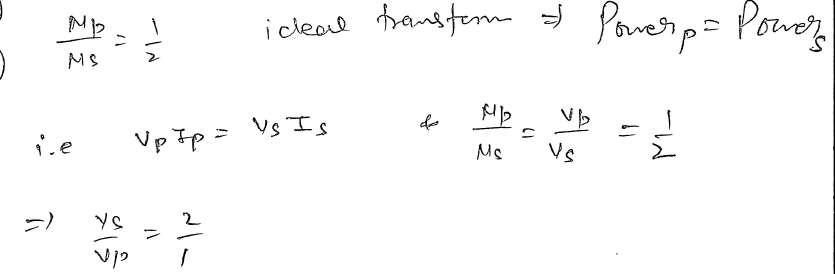 Np/Ns = 1/2 ideal transform ⇒ Powerp = Powers
i.e VpIp = VsIs & Np/Ns = Vp/Vs = 1/2
⇒ Vs/Vp = 2/1